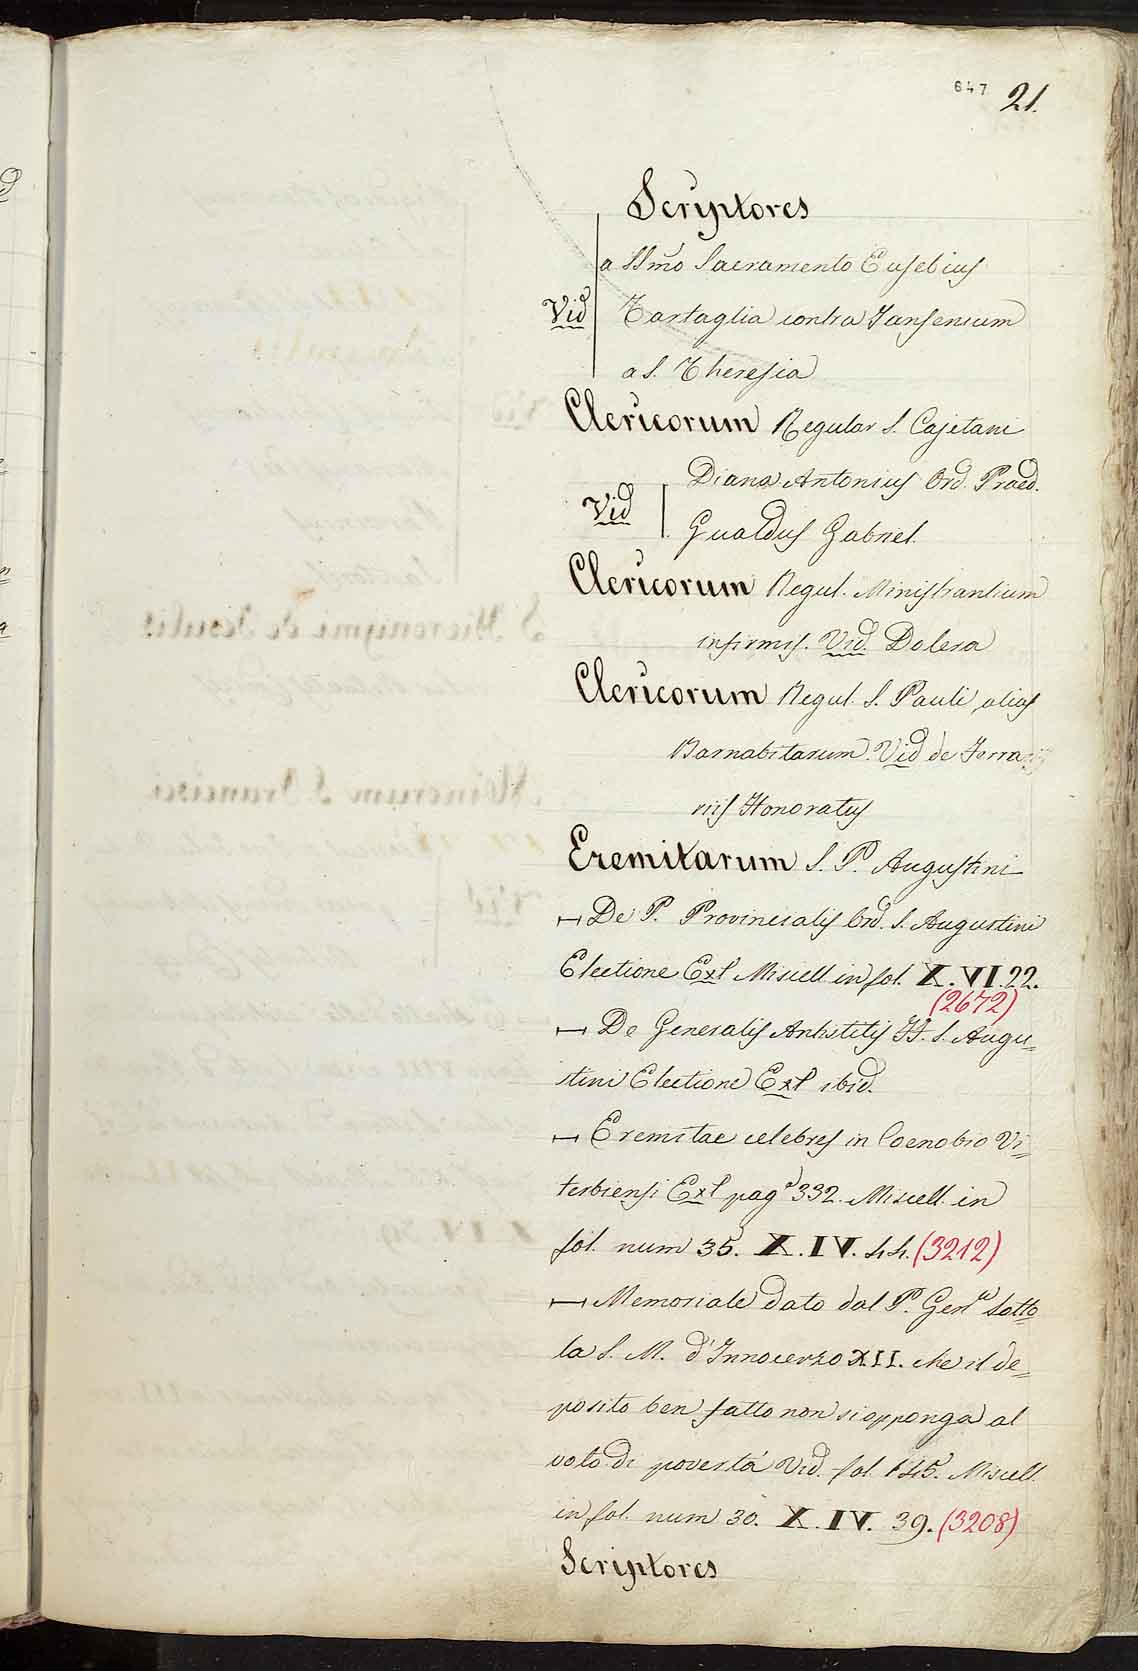 647 21.
Scriptores
a SSmo Sacramento Eusebius
Vid Tartaglia contra Jansenium
a S. Theresia
Clericorum Regular S. Cajetani
Diana Antonius Ord. Praed.
Vid
Gualdus Gabriel.
Clericorum Regul. Ministrantium
infirmis. Vid. Dolera
Clericorum Regul. S. Pauli alias
Barnabitarum. Vid de Ferra
riis Honoratus
Eremitarum S. P. Augustini
— De P. Provincialis Ord. S. Augustini
Electione Ext Miscell in fol. X. VI. 22.
(2672)
— De Generalis Antistitis S. Augu=
stini Electione Ext ibid.
— Eremitae celebres in Coenobio Vi=
terbiensi Ext pag 332. Miscell. in
fol. num 35. X. IV. 44. (3212)
— Memoriale dato dal P. Genle Sotto
la S. M. d'Innocenzo XII. che il de=
posito ben fatto non si opponga al
voto di povertà Vid. fol. 145. Miscell.
in fol. num 30. X. IV. 39. (3208)
Scriptores